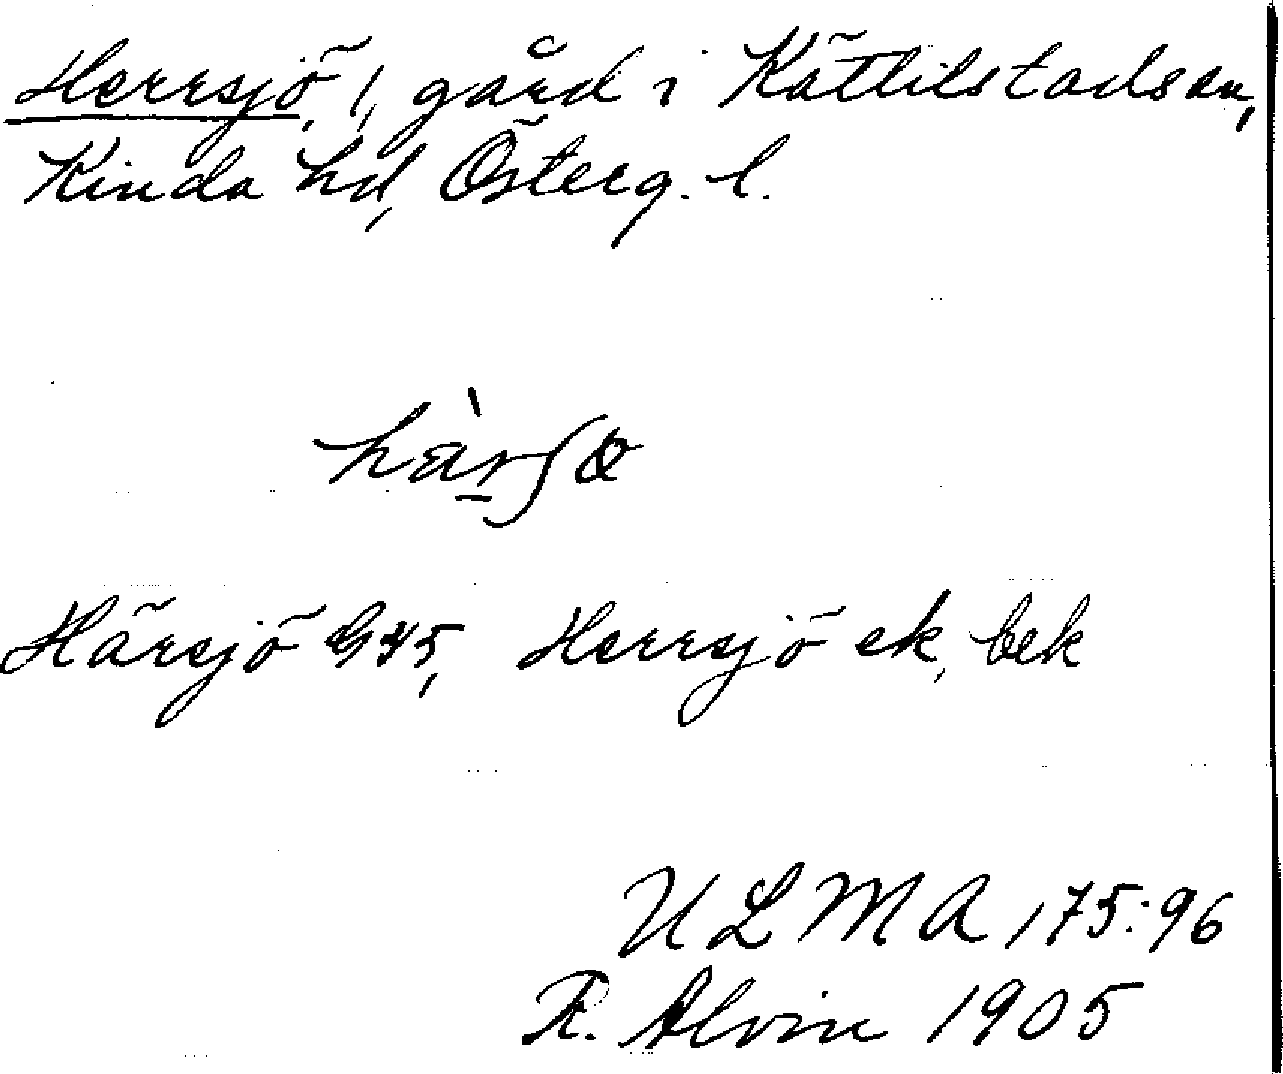 Herrsjö, 1, gård i Kättilstads sn,
Kinda hd, Österg. l.
hàrʃö
Härsjö G45, Herrsjö ek, bek
ULMA 175:96
R. Alvin 1905